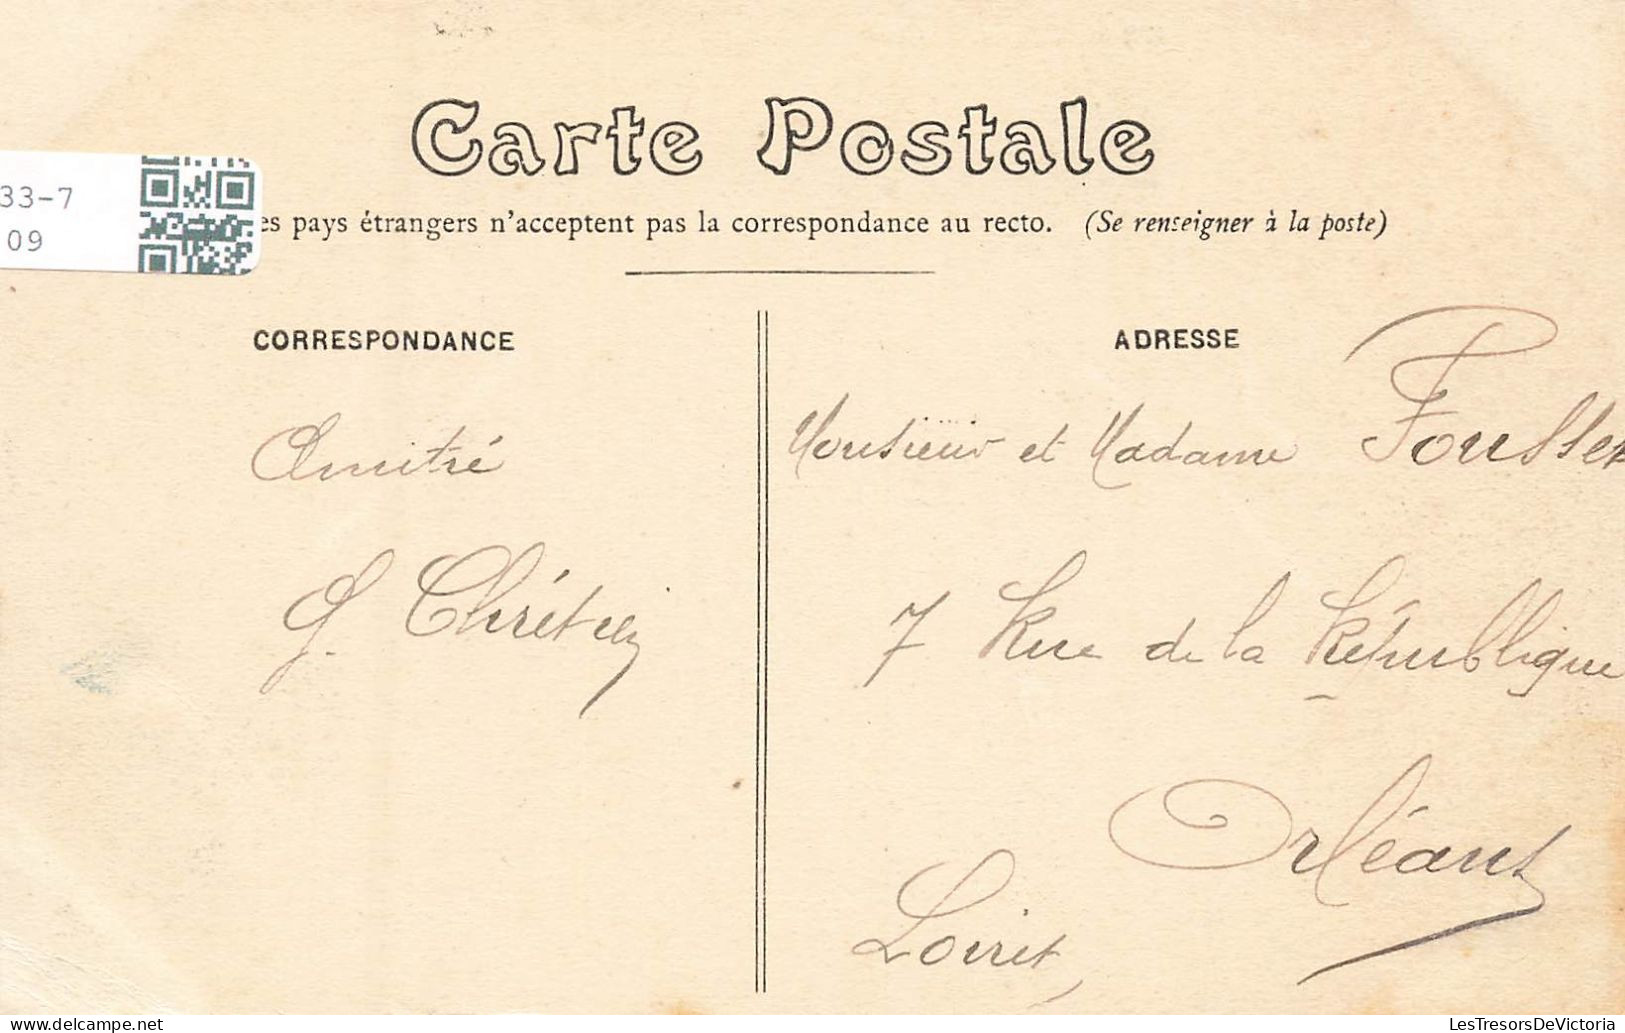 Carte Postale
33-7
09
es pays étrangers n'acceptent pas la correspondance au recto. (Se renseigner à la poste)
CORRESPONDANCE
Amitié
G. Chrétien
ADRESSE
Monsieur et Madame Fousset
7 Rue de la République
Orléans
Loiret,
LesTresorsDeVictoria